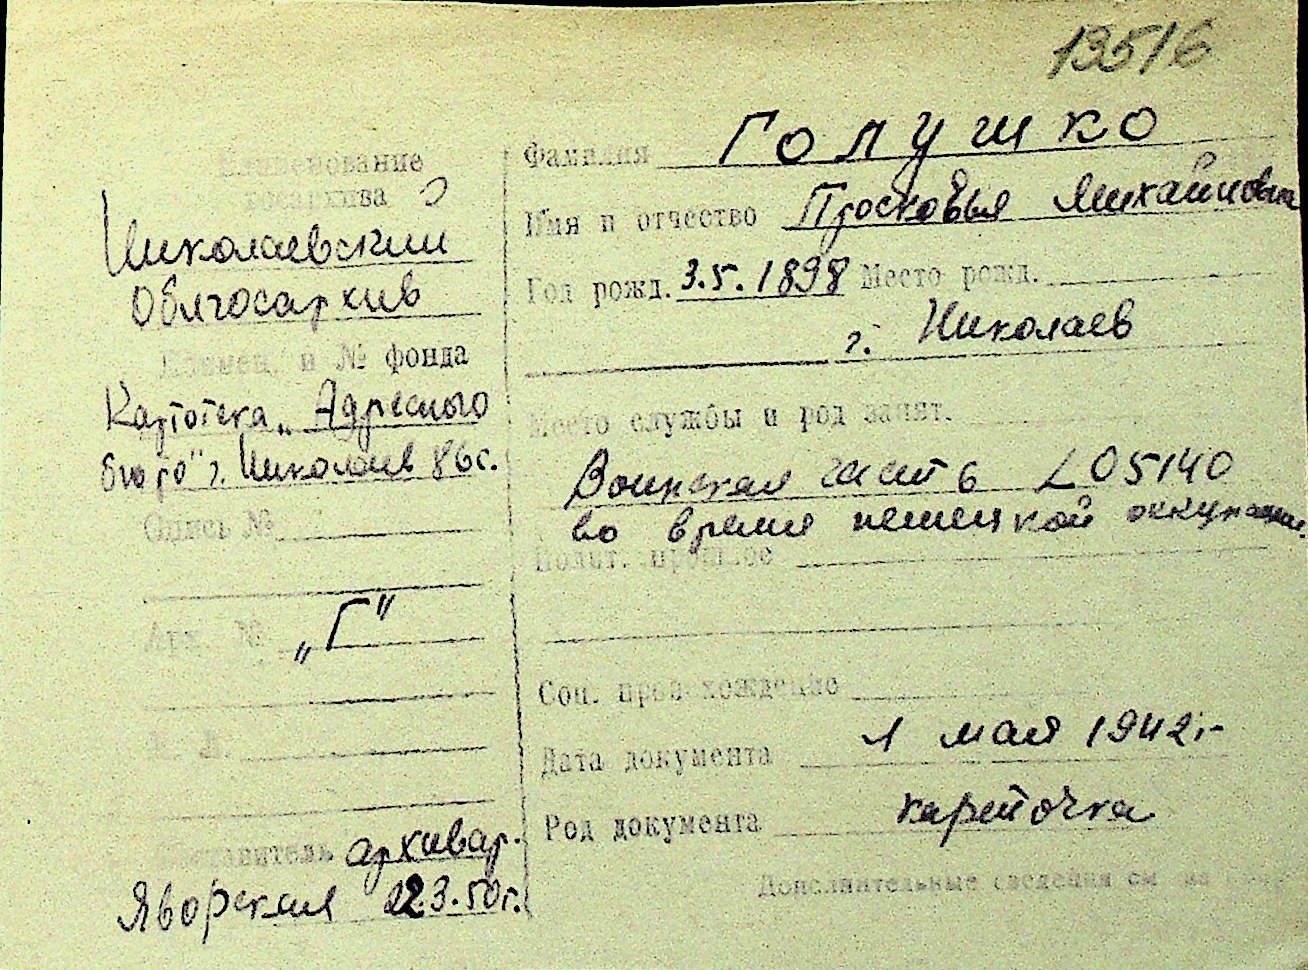 13516
Наименование
госархива
Николаевский
Облгосархив
Наимен. и № фонда
Картотека „Адресного
бюро" г. Николаев 86с.
Опись №
Арх. №
„Г"
Составитель архивар.
Яворская 22.3.50г.
Фамилия Голушко
Имя и отчество Просковья Михайловна
Год рожд. 3.5.1898 Место рожд.
г. Николаев
Место службы и род занят.
Воинская часть L05140
во время немецкой оккупации.
Полит. прошлое
Соц. происхождение
Дата документа 1 мая 1942г.
Род документа карточка
Дополнительные сведения см. на